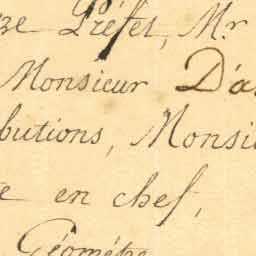 Préfet, Mr
Monsieur D'a
butions, Monsi
en chef,
Géomètre